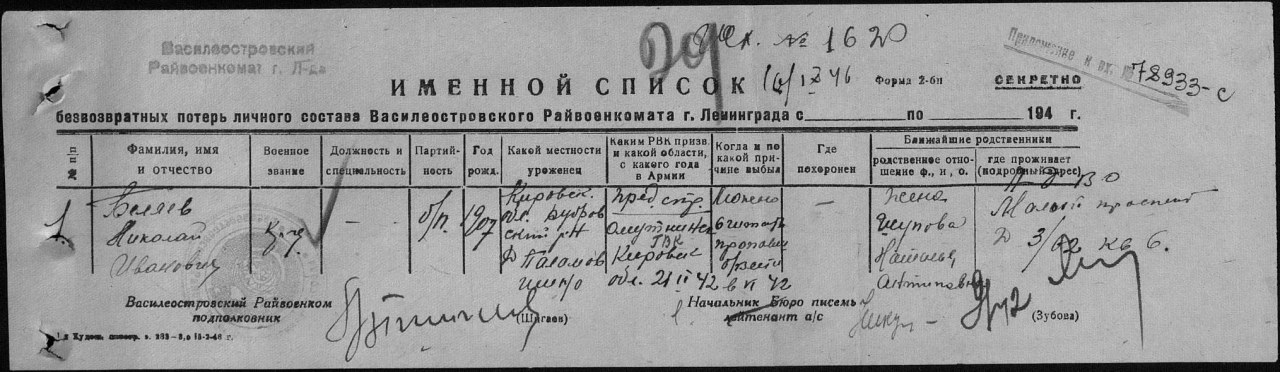 Василеостровский
Райвоенкомат г. Л-да
Исх. № 1620
Приложение к вх. №
78933-с
ИМЕННОЙ СПИСОК
Форма 2-бн
СЕКРЕТНО
безвозвратных потерь личного состава Василеостровского Райвоенкомата г. Ленинграда с по 194 г.
№ п/п
Фамилия, имя и отчество
Военное звание
Должность и специальность
Партийность
Год рожд.
Какой местности уроженец
Каким РВК призв. и какой области, с какого года в Армии
Когда и по какой причине выбыл
Где похоронен
Ближайшие родственники
родственное отношение ф., и., о.
где проживает (подробный адрес)
1.
Беляев
Николай
Иванович
–
б/п.
1907
Кировск.
обл.
р-н
д
Пред. стр.
Омутнинск
ГВК
Кировск
обл. 21 II 42
Можно
считать
пропавш
б/вести
в VI 42
–
жена
Наталья
Антиповна
Малый проспект
д 3/62 кв 6.
Василеостровский Райвоенком
подполковник
(Шигаев)
Начальник Бюро писем
лейтенант а/с
(Зубова)